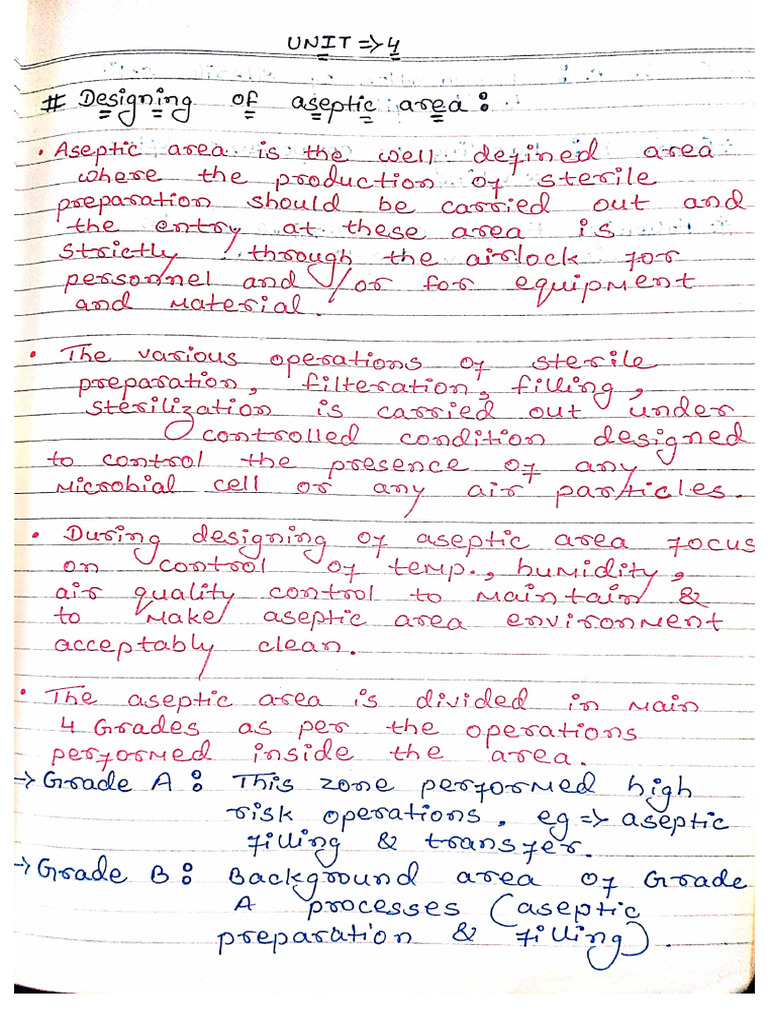 UNIT => 4
# Designing of aseptic area :
• Aseptic area is the well defined area
where the production of sterile
preparation should be carried out and
the entry at these area is
strictly through the airlock for
personnel and /or for equipment
and material.
• The various operations of sterile
preparation, filteration, filling,
sterilization is carried out under
controlled condition designed
to control the presence of any
microbial cell or any air particles.
• During designing of aseptic area focus
on control of temp., humidity,
air quality control to maintain &
to make aseptic area environment
acceptably clean.
• The aseptic area is divided in main
4 Grades as per the operations
performed inside the area.
→ Grade A : This zone performed high
risk operations. eg => aseptic
filling & transfer.
→ Grade B : Background area of Grade
A processes (aseptic
preparation & filling).